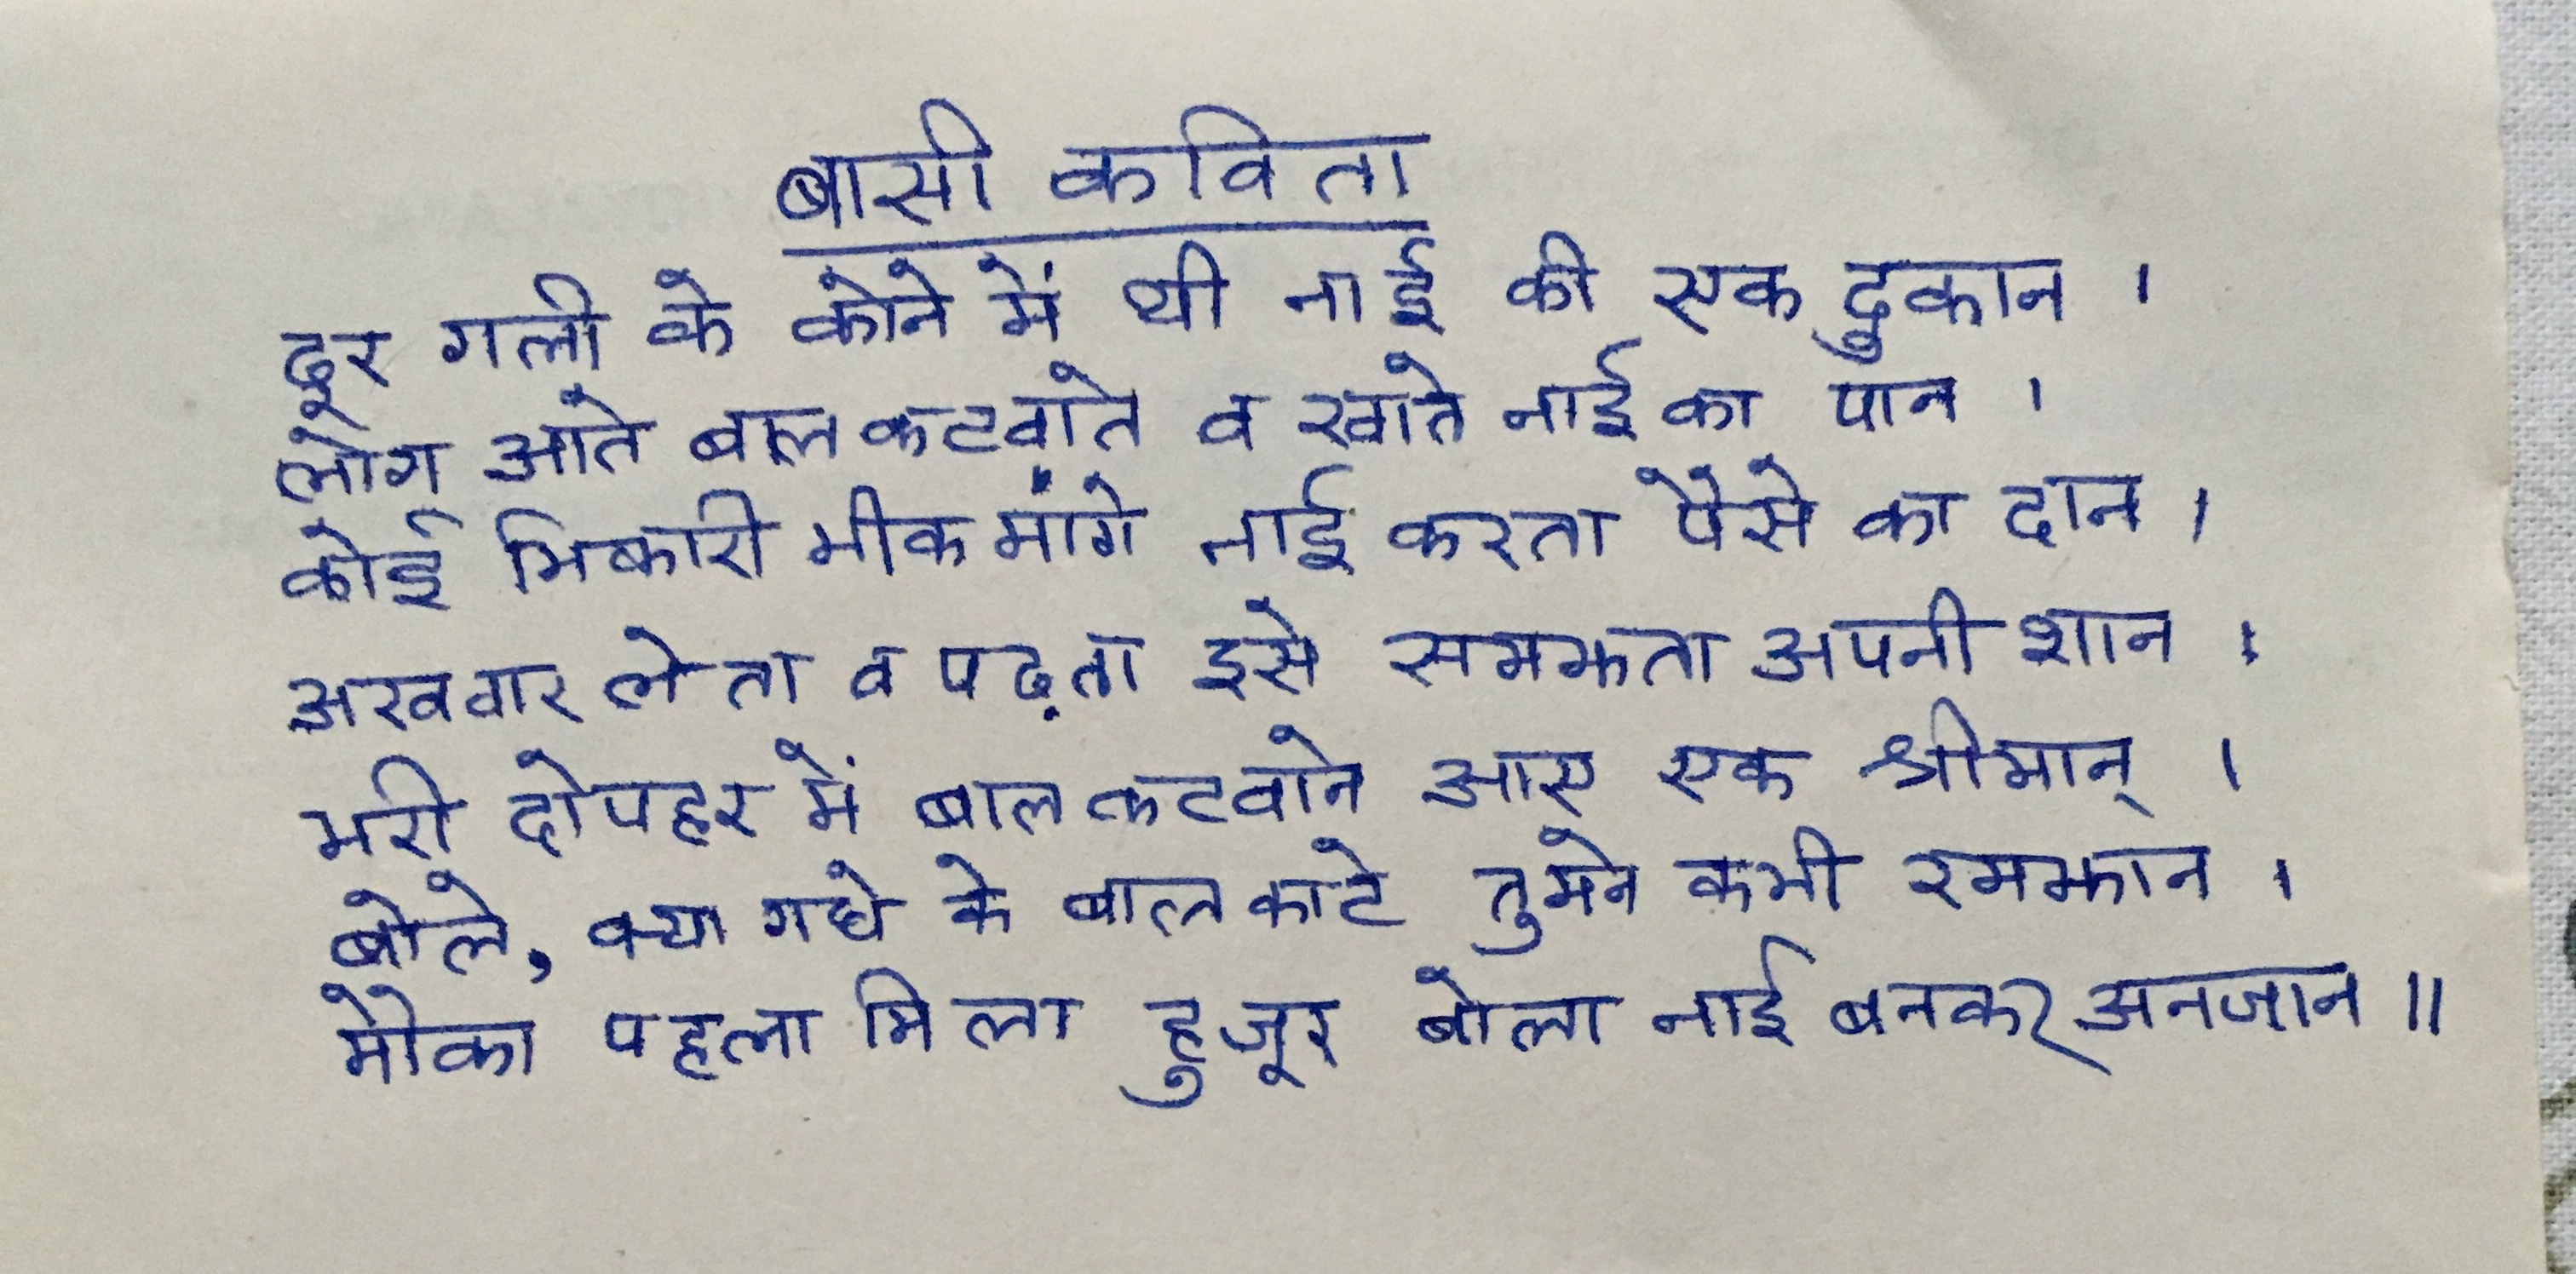 बासी कविता
दूर गली के कोने में थी नाई की एक दुकान ।
लोग आते बाल कटवाते व खाते नाई का पान ।
कोई भिकारी भीक मांगे नाई करता पैसे का दान ।
अखवार लेता व पढ़ता इसे समझता अपनी शान ।
भरी दोपहर में बाल कटवाने आए एक श्रीमान् ।
बोले, क्या गधे के बाल काटे तुमने कभी रमझान ।
मौका पहला मिला हुजूर बोला नाई बनकर अनजान ॥